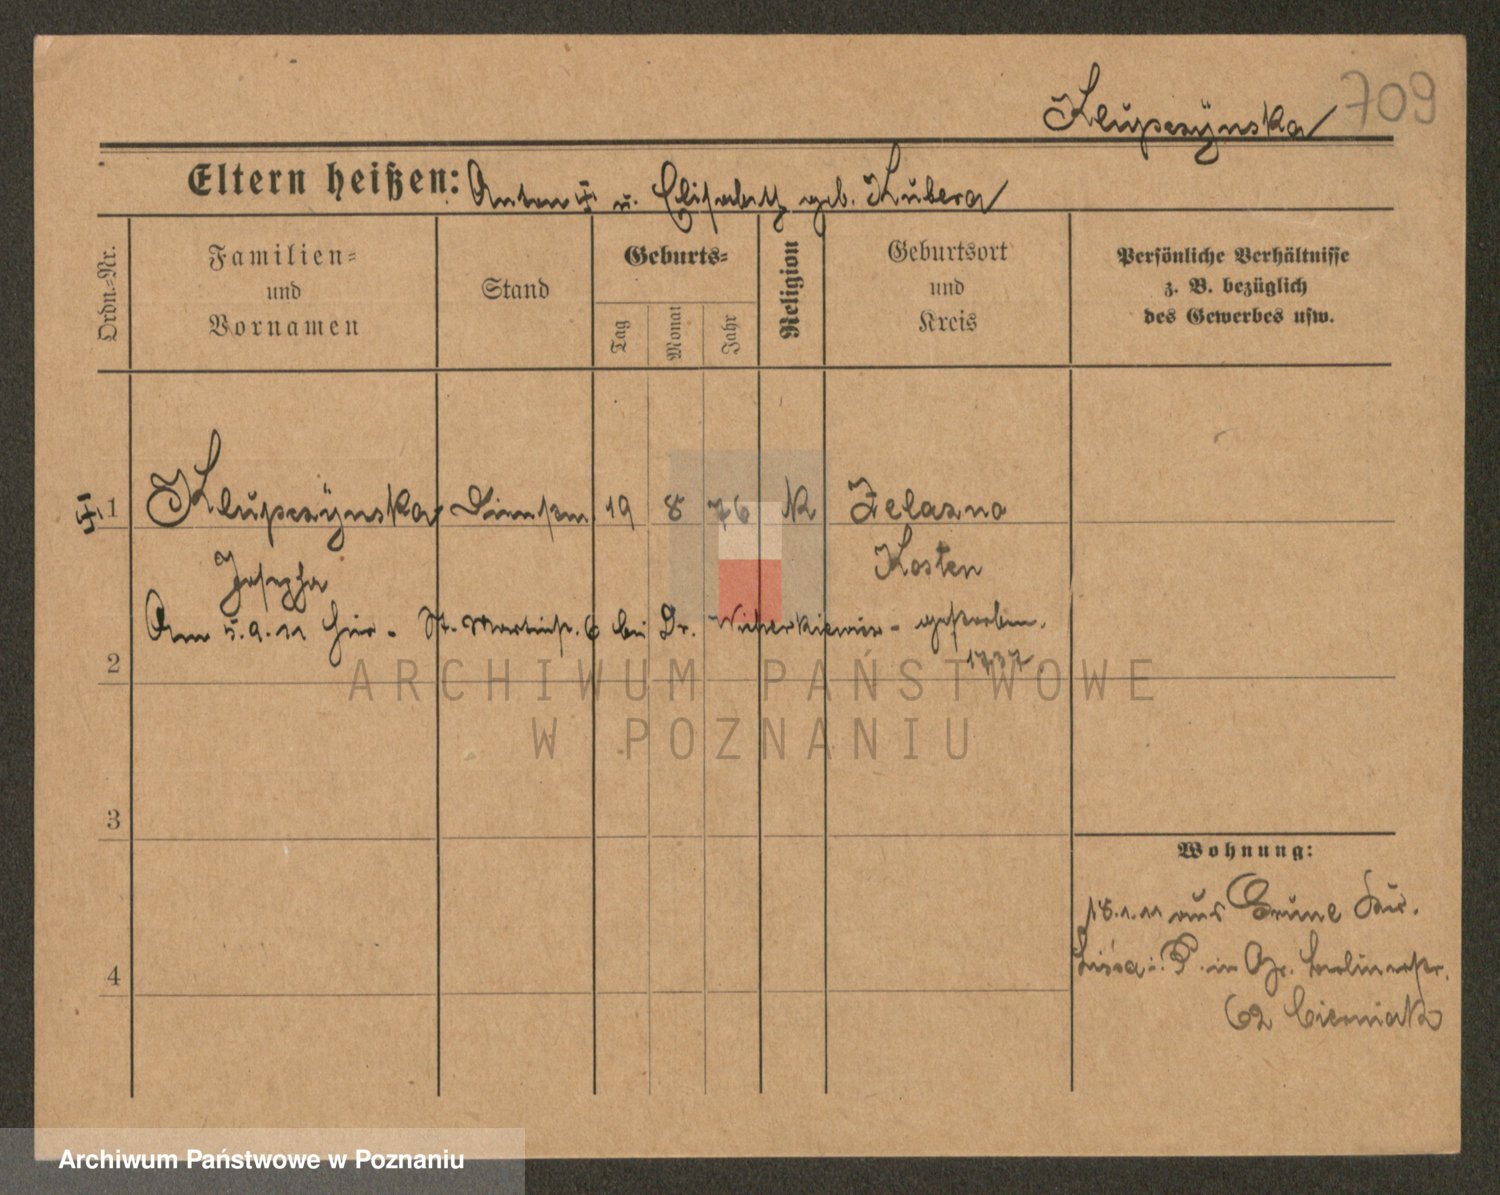 Klupczynska 709
Eltern heißen: Anton u. Elisabeth geb. Kubera
Ordn.-Nr.
Familien-
und
Vornamen
Stand
Geburts-
Tag
Monat
Jahr
Religion
Geburtsort
und
Kreis
Persönliche Verhältnisse
z. B. bezüglich
des Gewerbes usw.
1 Klupczynska 19 8 76 K Zelazno
Josepha Kosten
Am 5.9.11 hier - St. Martinstr. 6 bei Dr. - gestorben.
1737
2
ARCHIWUM PAŃSTWOWE
W POZNANIU
3
4
Wohnung:
18.1.11 aus Grune
Lissa i. P. in Gr. Berlinerstr.
62 Cierniak
Archiwum Państwowe w Poznaniu